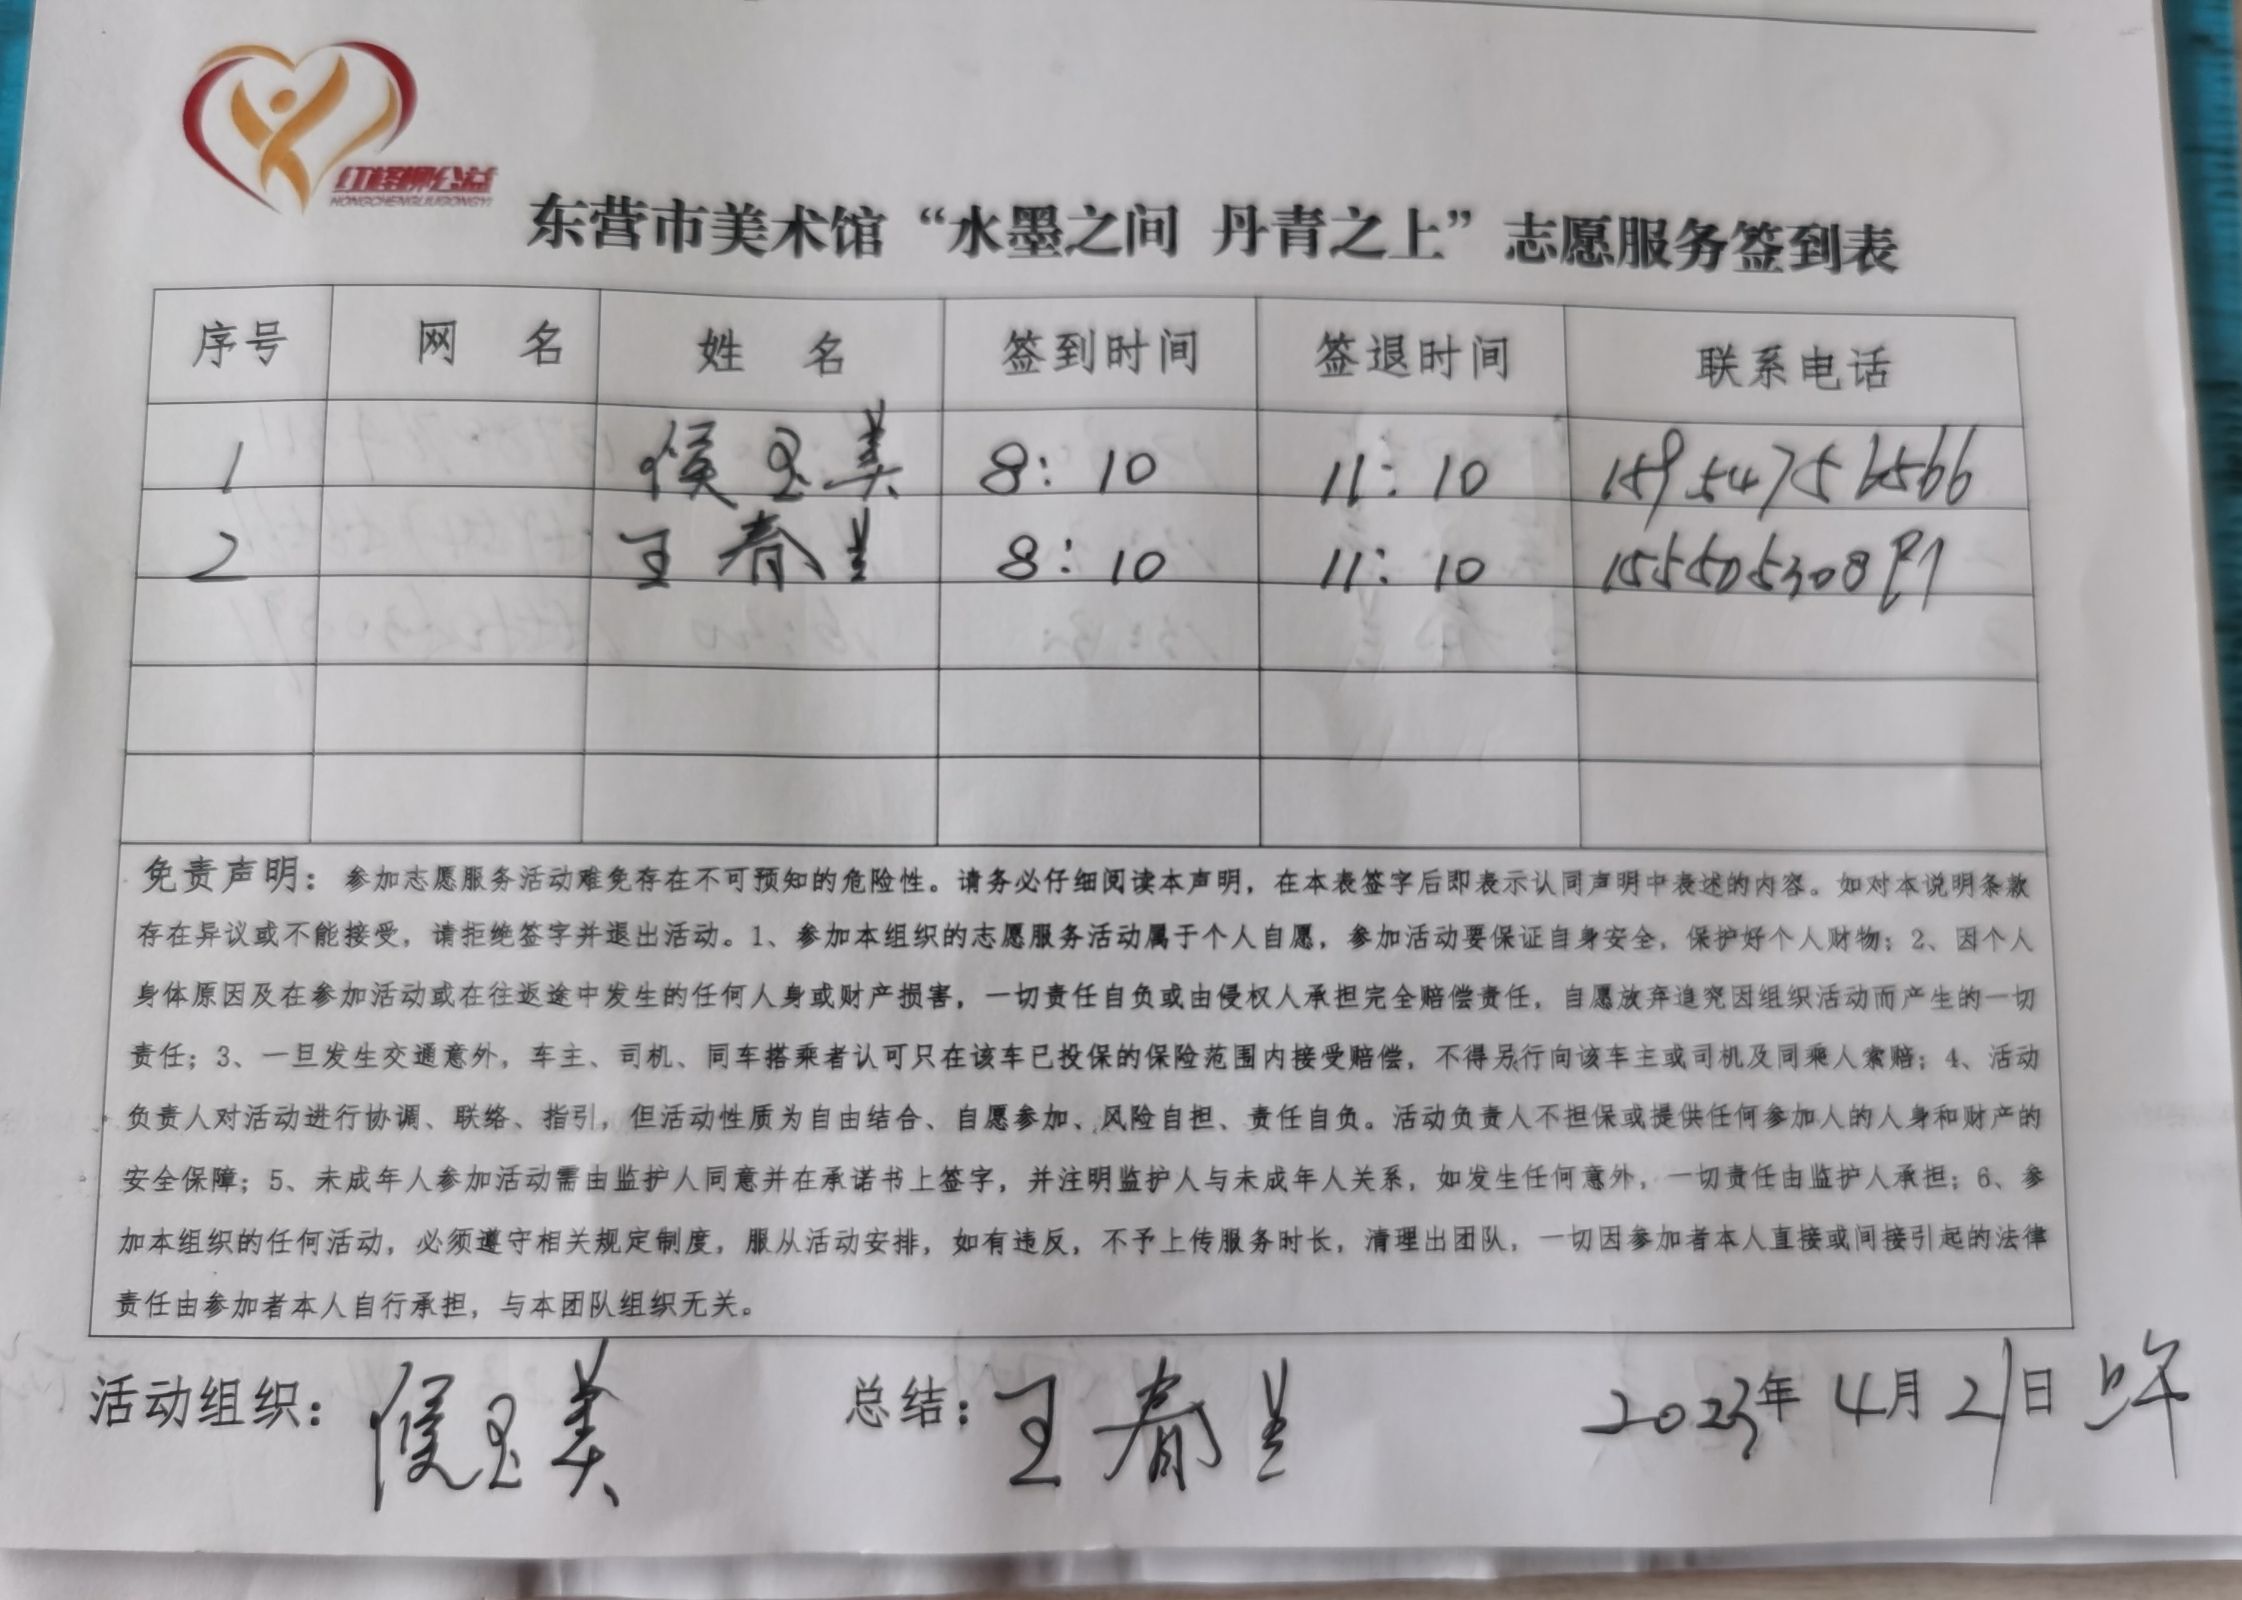 红柽柳公益
HONGCHENGLIUGONGYI
东营市美术馆“水墨之间 丹青之上”志愿服务签到表
序号 网 名 姓 名 签到时间 签退时间 联系电话
1 侯玉美 8:10 11:10 15954756566
2 王春兰 8:10 11:10 15550530891
免责声明：参加志愿服务活动难免存在不可预知的危险性。请务必仔细阅读本声明，在本表签字后即表示认同声明中表述的内容。如对本说明条款
存在异议或不能接受，请拒绝签字并退出活动。1、参加本组织的志愿服务活动属于个人自愿，参加活动要保证自身安全，保护好个人财物；2、因个人
身体原因及在参加活动或在往返途中发生的任何人身或财产损害，一切责任自负或由侵权人承担完全赔偿责任，自愿放弃追究因组织活动而产生的一切
责任；3、一旦发生交通意外，车主、司机、同车搭乘者认可只在该车已投保的保险范围内接受赔偿，不得另行向该车主或司机及同乘人索赔；4、活动
负责人对活动进行协调、联络、指引，但活动性质为自由结合、自愿参加、风险自担、责任自负。活动负责人不担保或提供任何参加人的人身和财产的
安全保障；5、未成年人参加活动需由监护人同意并在承诺书上签字，并注明监护人与未成年人关系，如发生任何意外，一切责任由监护人承担；6、参
加本组织的任何活动，必须遵守相关规定制度，服从活动安排，如有违反，不予上传服务时长，清理出团队，一切因参加者本人直接或间接引起的法律
责任由参加者本人自行承担，与本团队组织无关。
活动组织：侯玉美 总结：王春兰 2023年4月21日上午